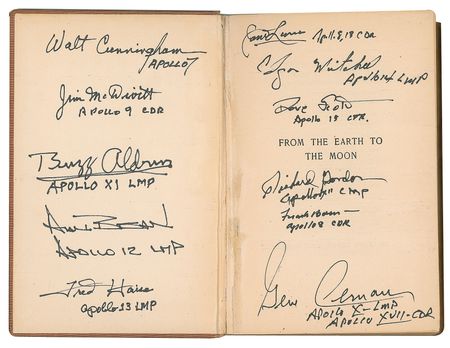 Walt Cunningham
APOLLO 7
Jim McDivitt
APOLLO 9 CDR
Buzz Aldrin
APOLLO XI LMP
Alan BEAN
APOLLO 12 LMP
Fred Haise
apollo 13 LMP
Apoll. 8, 13 CDR
Edgar Mitchell
Apollo 14 LMP
Dave Scott
Apollo 15 CDR.
FROM THE EARTH TO
THE MOON
Richard Gordon
apollo XII CMP
Frank Borman
apollo 8 CDR
Gene Cernan
APOLLO X-LMP
APOLLO XVII-CDR